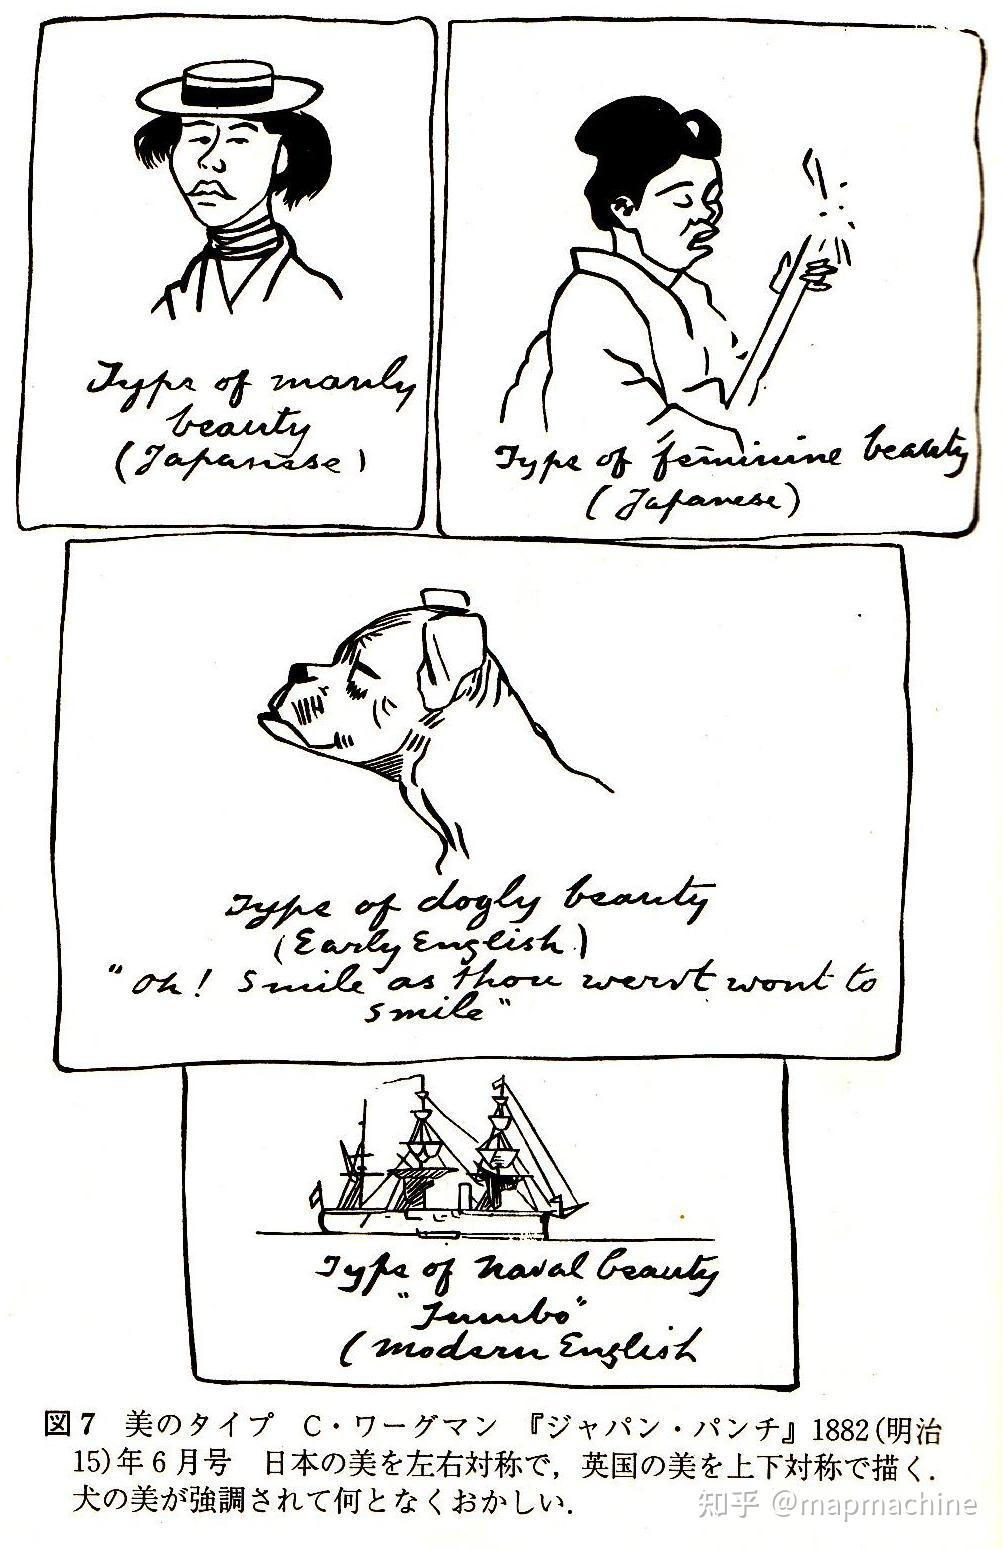 Type of manly
beauty
(Japanese)
Type of feminine beauty
(Japanese)
Type of dogly beauty
(Early English)
"Oh! Smile as thou werst wont to
smile"
Type of Naval beauty
"Jumbo"
(modern English
図7 美のタイプ C・ワーグマン 『ジャパン・パンチ』1882(明治
15)年6月号 日本の美を左右対称で,英国の美を上下対称で描く.
犬の美が強調されて何となくおかしい.
知乎 @mapmachine